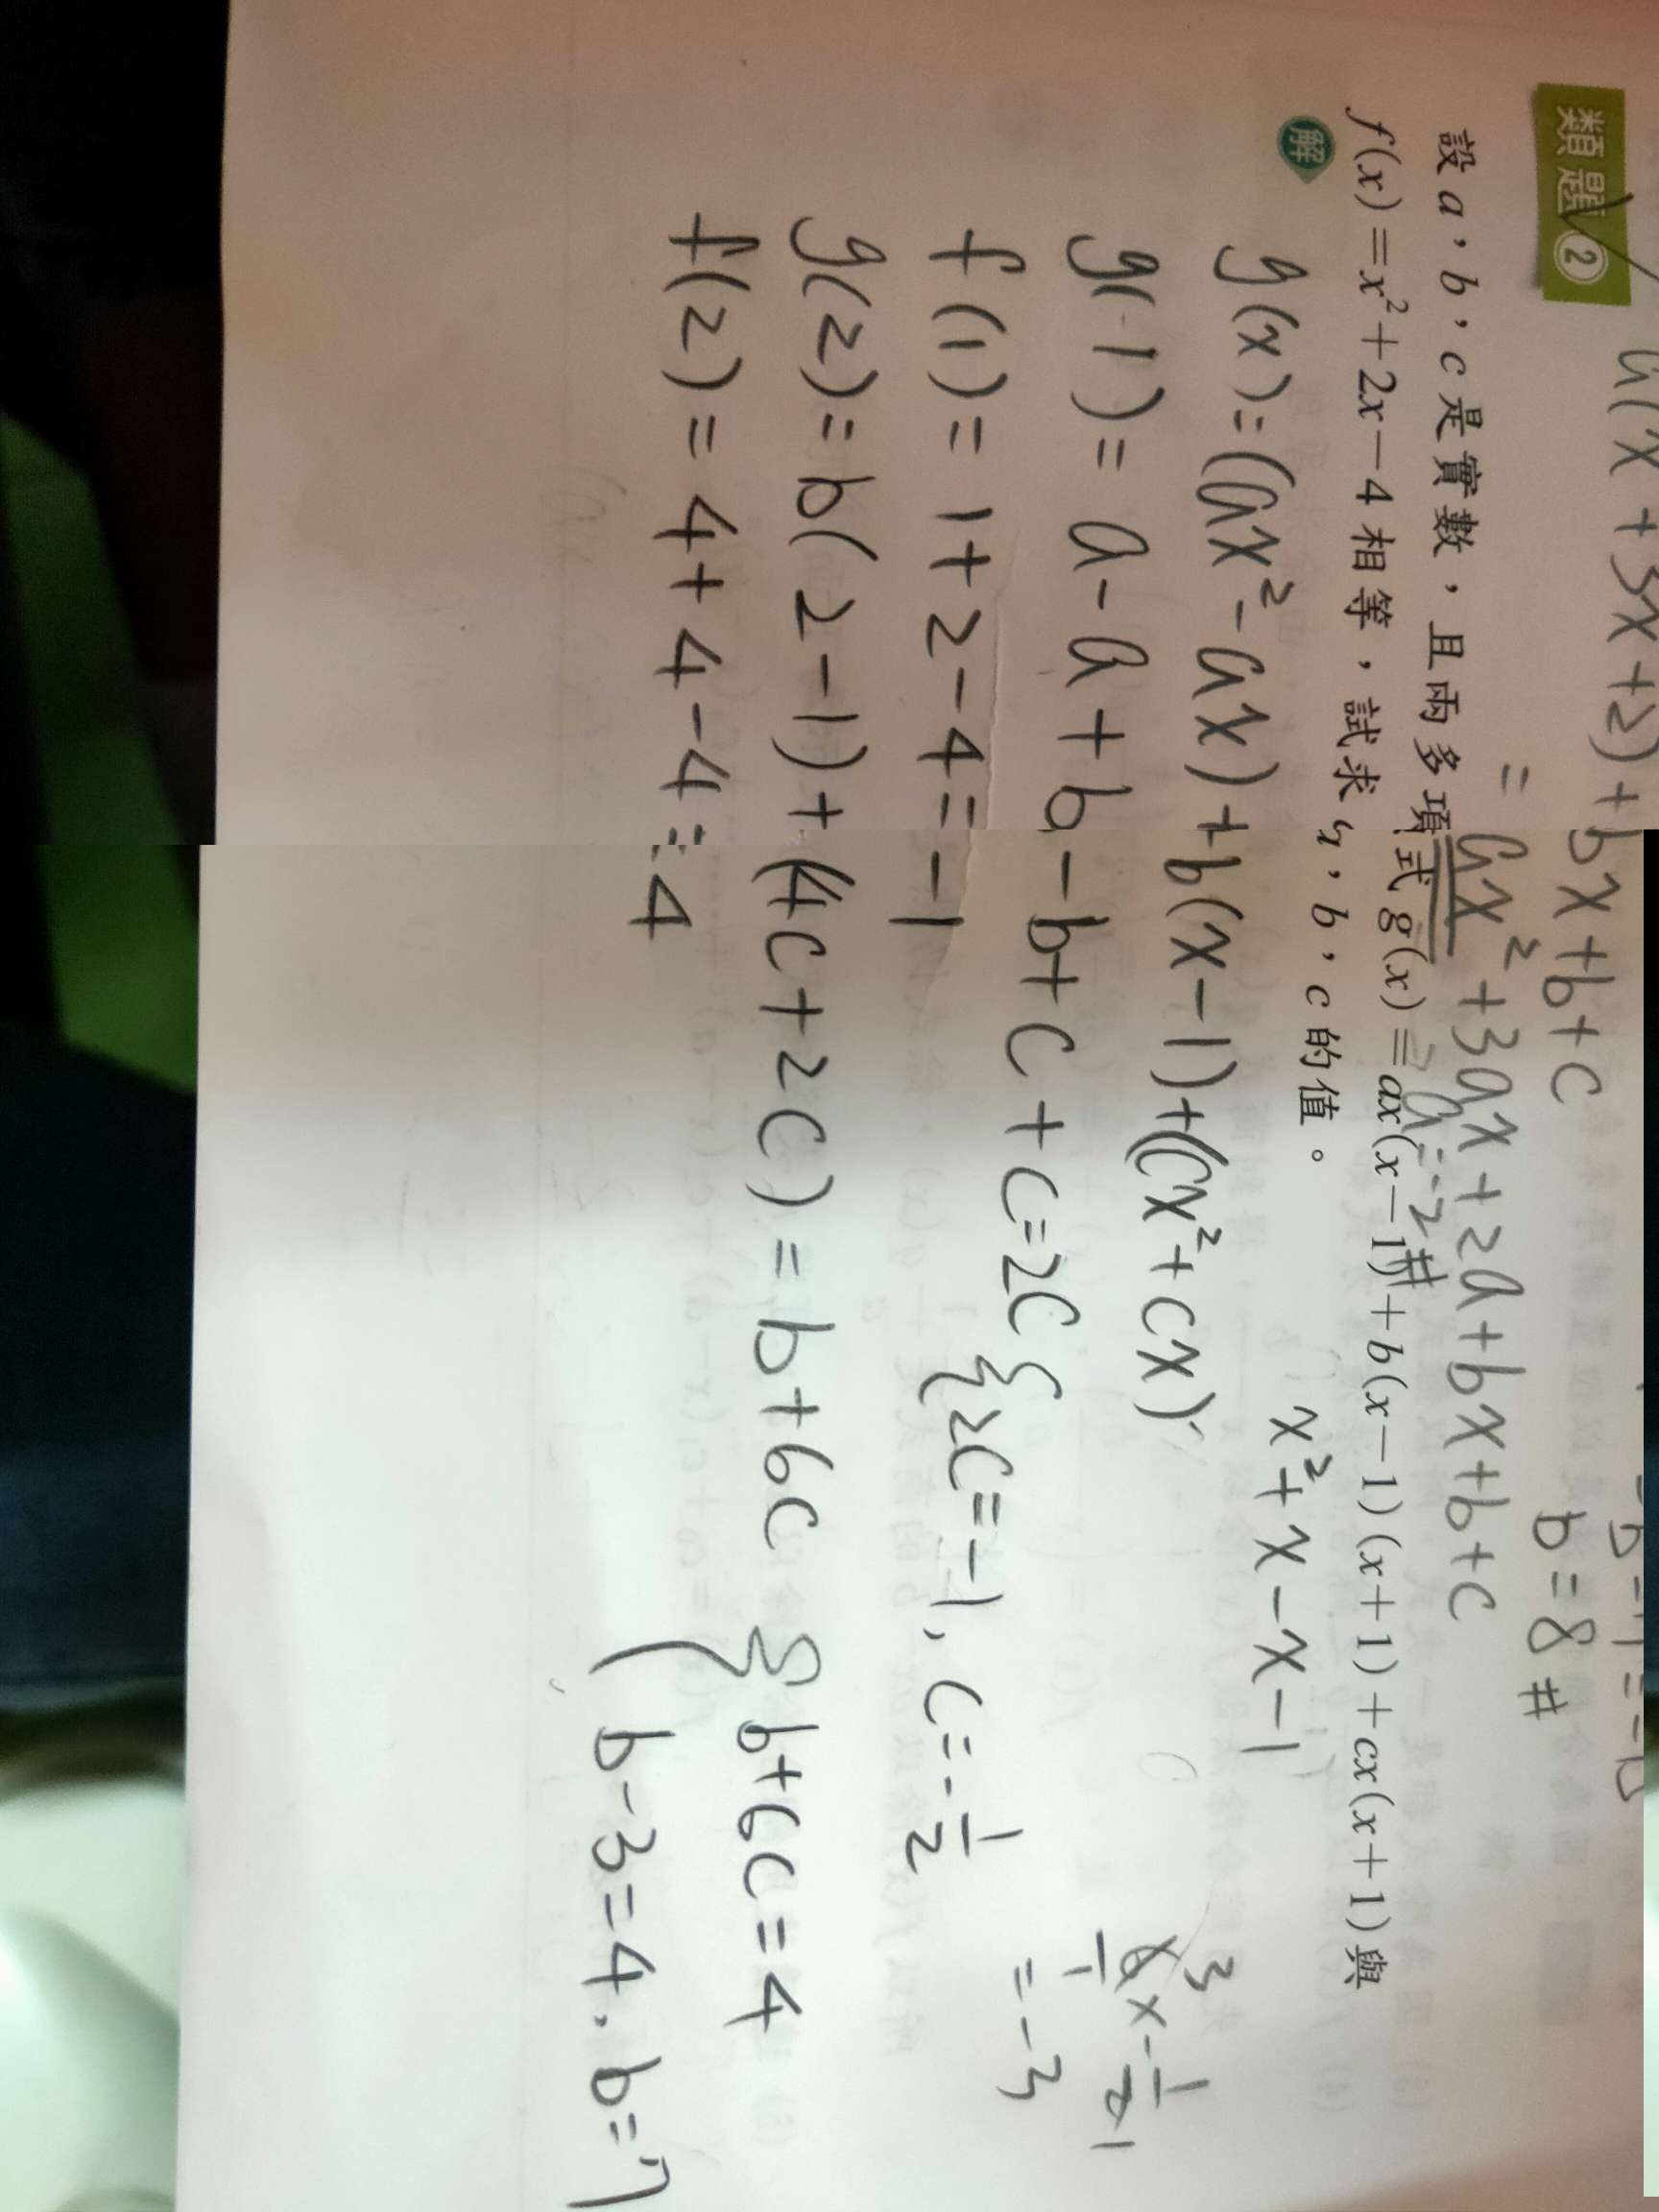 a(x + 3x + 2) + bx + b + c
= ax² + 3ax + 2a + bx + b + c
b = 8 #
a = -2 #
類題 ②
設 a,b,c 是實數,且兩多項式 g(x)=ax(x-1)+b(x-1)(x+1)+cx(x+1)與
f(x)=x²+2x-4相等,試求a,b,c的值。
解
x² + x - x - 1
g(x) = (ax² - ax) + b(x-1) + (cx² + cx)
g(1) = a - a + b - b + c + c = 2c
f(1) = 1 + 2 - 4 = -1
{ 2c = -1, c = -1/2
= -3
g(2) = b(2-1) + (4c + 2c) = b + 6c
f(2) = 4 + 4 - 4 = 4
{ b + 6c = 4
b - 3 = 4, b = 7